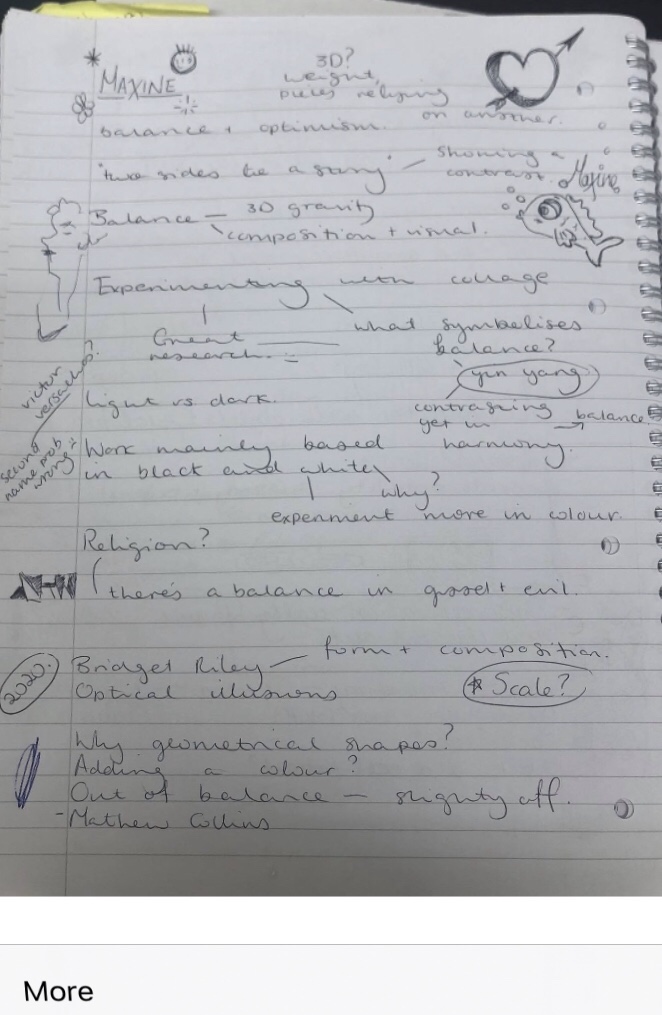 MAXINE
3D?
weight,
pieces relying
on another.
balance + optimism.
"two sides to a story" — showing a
contrast.
Maxine
Balance — 3D gravity
composition + visual.
Experimenting with collage
Great
research.
what symbolises
balance?
yin yang
contrasing
yet in
harmony.
→ balance
victor
versace?
second
name prob
wrong
light vs dark.
Work mainly based
in black and white
why?
experiment more in colour.
Religion?
there's a balance in good + evil.
2020.
Bridget Riley — form + composition.
Optical illusions
* Scale?
Why geometrical shapes?
Adding a colour?
Out of balance — slighty off.
- Mathew Collins
More